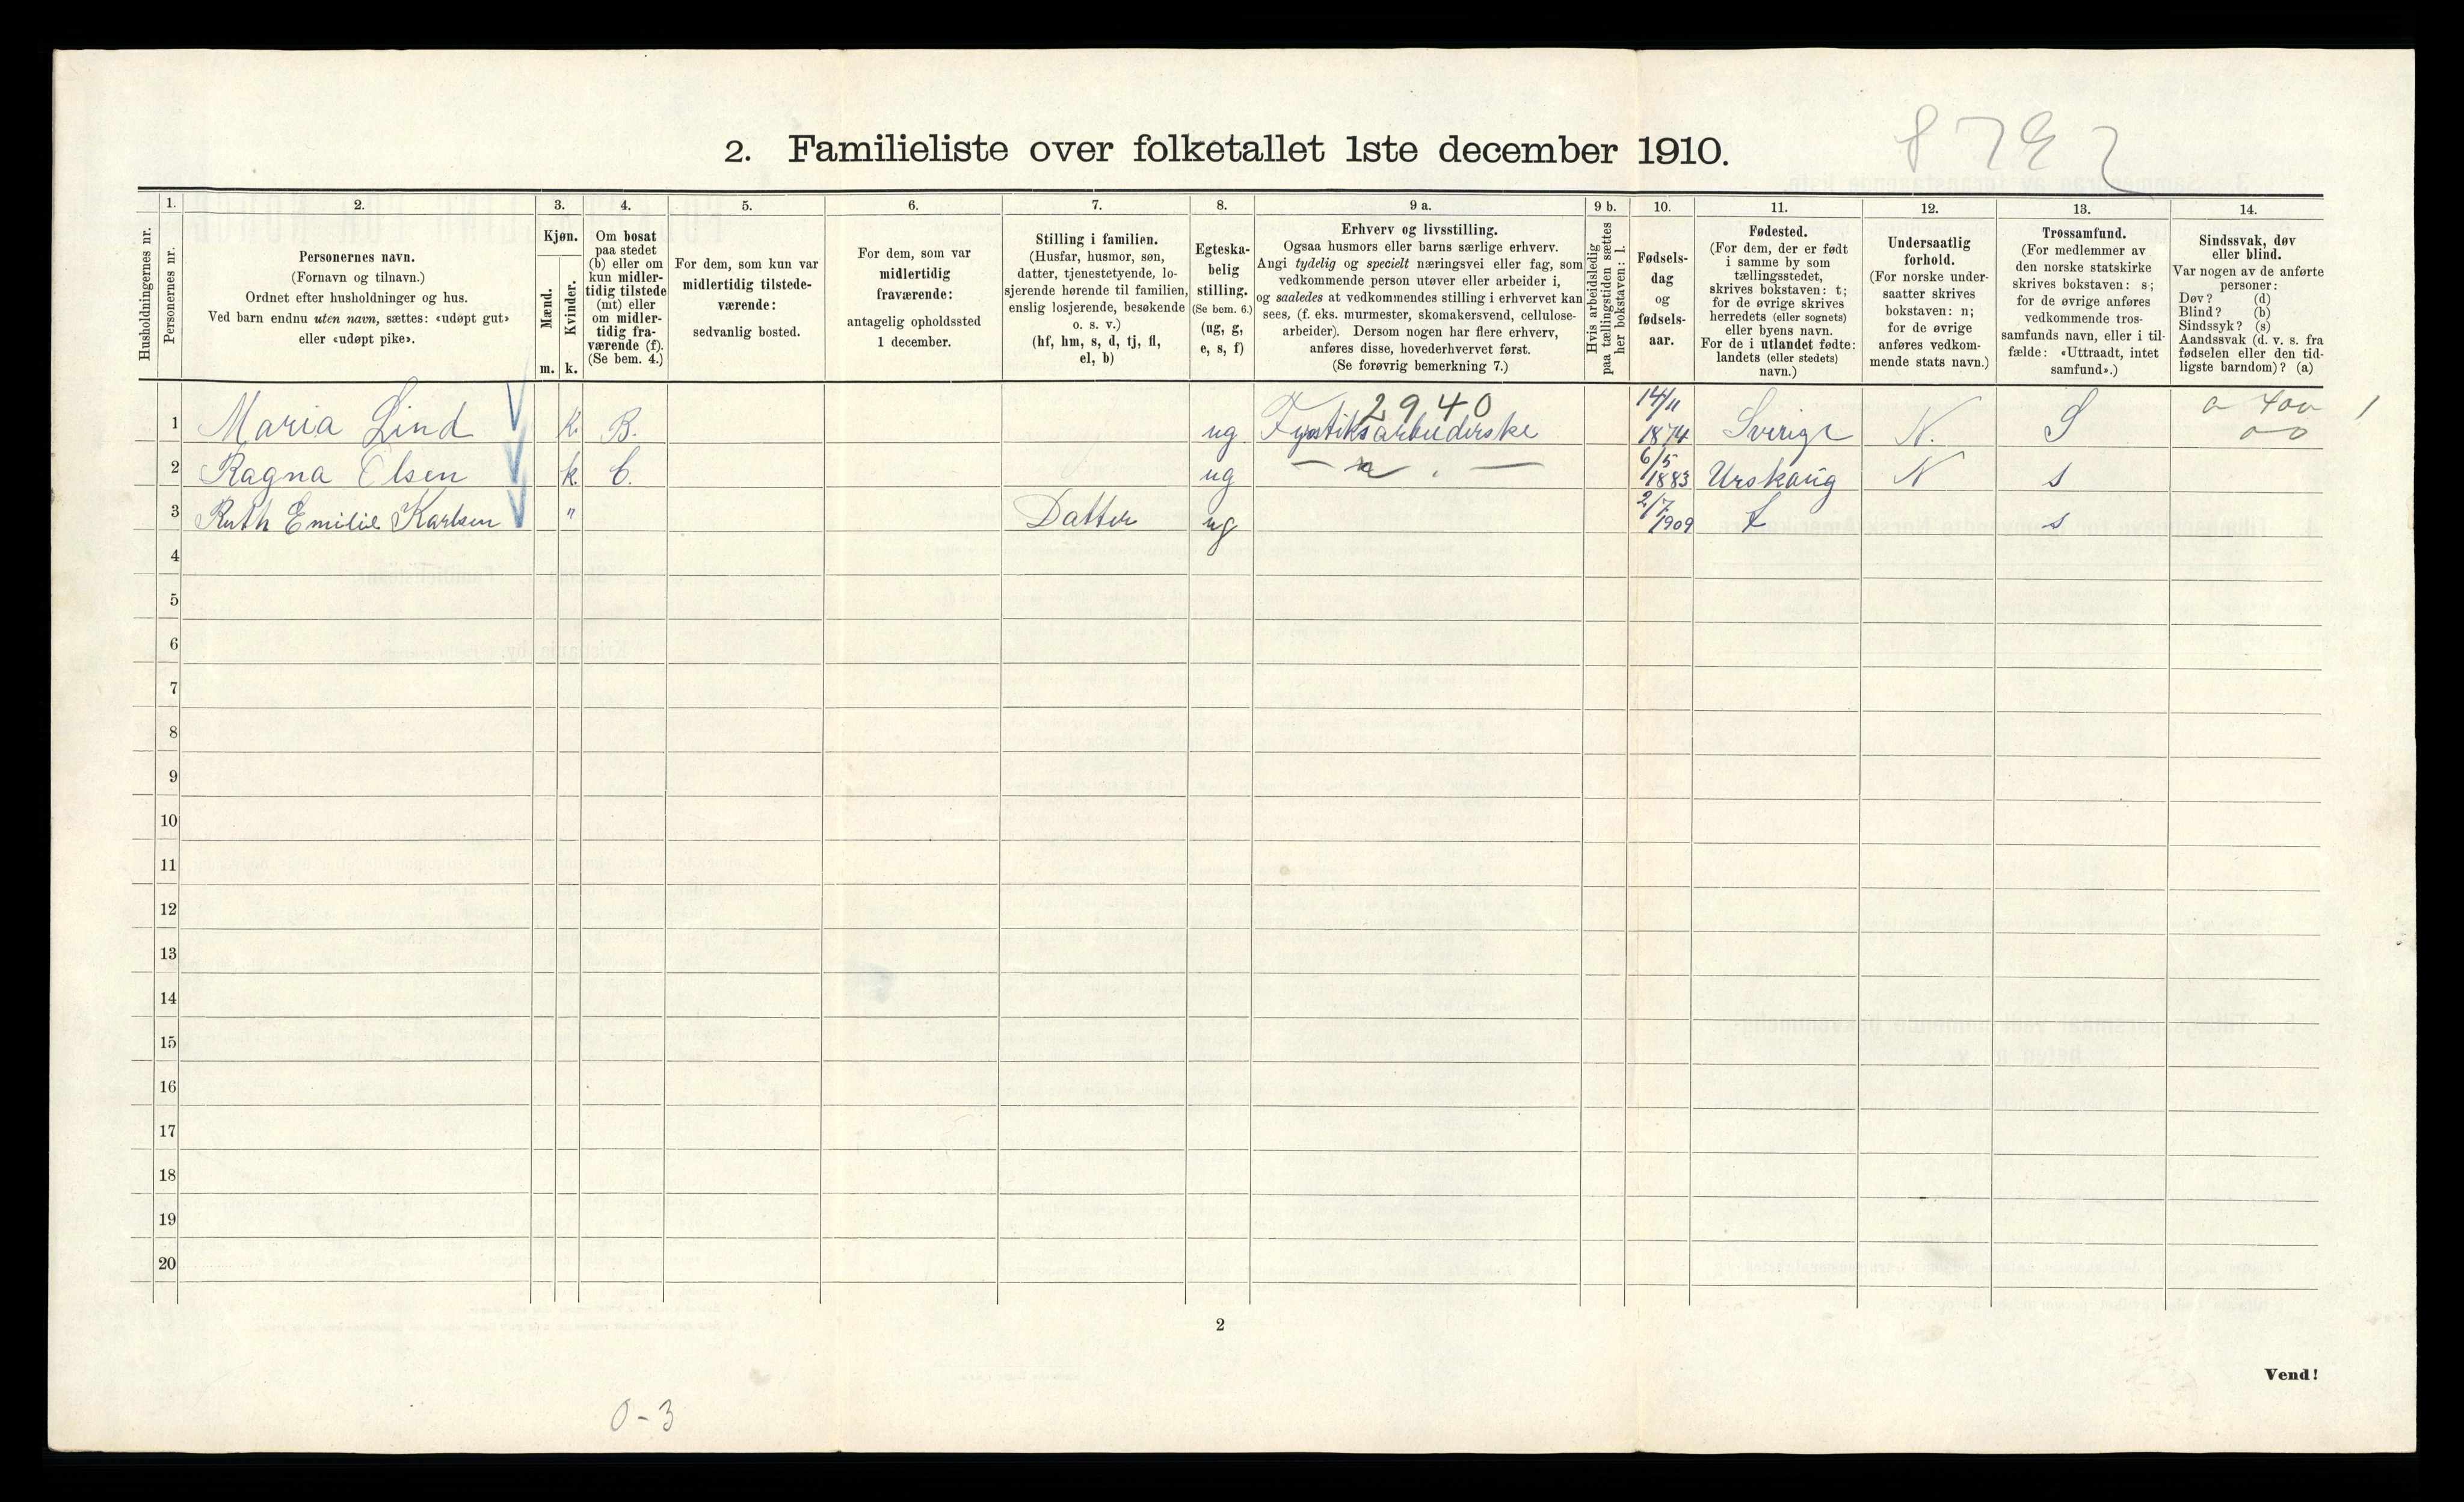 8792
2. Familieliste over folketallet 1ste december 1910.
Husholdningernes nr.
1.
Personernes nr.
2.
Personernes navn.
(Fornavn og tilnavn.)
Ordnet efter husholdninger og hus.
Ved barn endnu uten navn, sættes: «udøpt gut»
eller «udøpt pike».
3.
Kjøn.
Mænd.
Kvinder.
m. k.
4.
Om bosat
paa stedet
(b) eller om
kun midler-
tidig tilstede
(mt) eller
om midler-
tidig fra-
værende (f).
(Se bem. 4.)
5.
For dem, som kun var
midlertidig tilstede-
værende:
sedvanlig bosted.
6.
For dem, som var
midlertidig
fraværende:
antagelig opholdssted
1 december.
7.
Stilling i familien.
(Husfar, husmor, søn,
datter, tjenestetyende, lo-
sjerende hørende til familien,
enslig losjerende, besøkende
o. s. v.)
(hf, hm, s, d, tj, fl,
el, b)
8.
Egteska-
belig
stilling.
(Se bem. 6.)
(ug, g,
e, s, f)
9 a.
Erhverv og livsstilling.
Ogsaa husmors eller barns særlige erhverv.
Angi tydelig og specielt næringsvei eller fag, som
vedkommende person utøver eller arbeider i,
og saaledes at vedkommendes stilling i erhvervet kan
sees, (f. eks. murmester, skomakersvend, cellulose-
arbeider). Dersom nogen har flere erhverv,
anføres disse, hovederhvervet først.
(Se forøvrig bemerkning 7.)
9 b.
Hvis arbeidsledig
paa tællingstiden sættes
her bokstaven: l.
10.
Fødsels-
dag
og
fødsels-
aar.
11.
Fødested.
(For dem, der er født
i samme by som
tællingsstedet,
skrives bokstaven: t;
for de øvrige skrives
herredets (eller sognets)
eller byens navn.
For de i utlandet fødte:
landets (eller stedets)
navn.)
12.
Undersaatlig
forhold.
(For norske under-
saatter skrives
bokstaven: n;
for de øvrige
anføres vedkom-
mende stats navn.)
13.
Trossamfund.
(For medlemmer av
den norske statskirke
skrives bokstaven: s;
for de øvrige anføres
vedkommende tros-
samfunds navn, eller i til-
fælde: «Uttraadt, intet
samfund».)
14.
Sindssvak, døv
eller blind.
Var nogen av de anførte
personer:
Døv? (d)
Blind? (b)
Sindssyk? (s)
Aandssvak (d. v. s. fra
fødselen eller den tid-
ligste barndom)? (a)
1 Maria Lind k. B. ug 2940 14/11 1874 Sverige N. S
2 Ragna Olsen k. ug 6/5 1883 Urskaug N s
3 Ruth Emilie Karlsen " Datter ug 2/7 1909 t s
4
5
6
7
8
9
10
11
12
13
14
15
16
17
18
19
20
2
Vend!
0-3